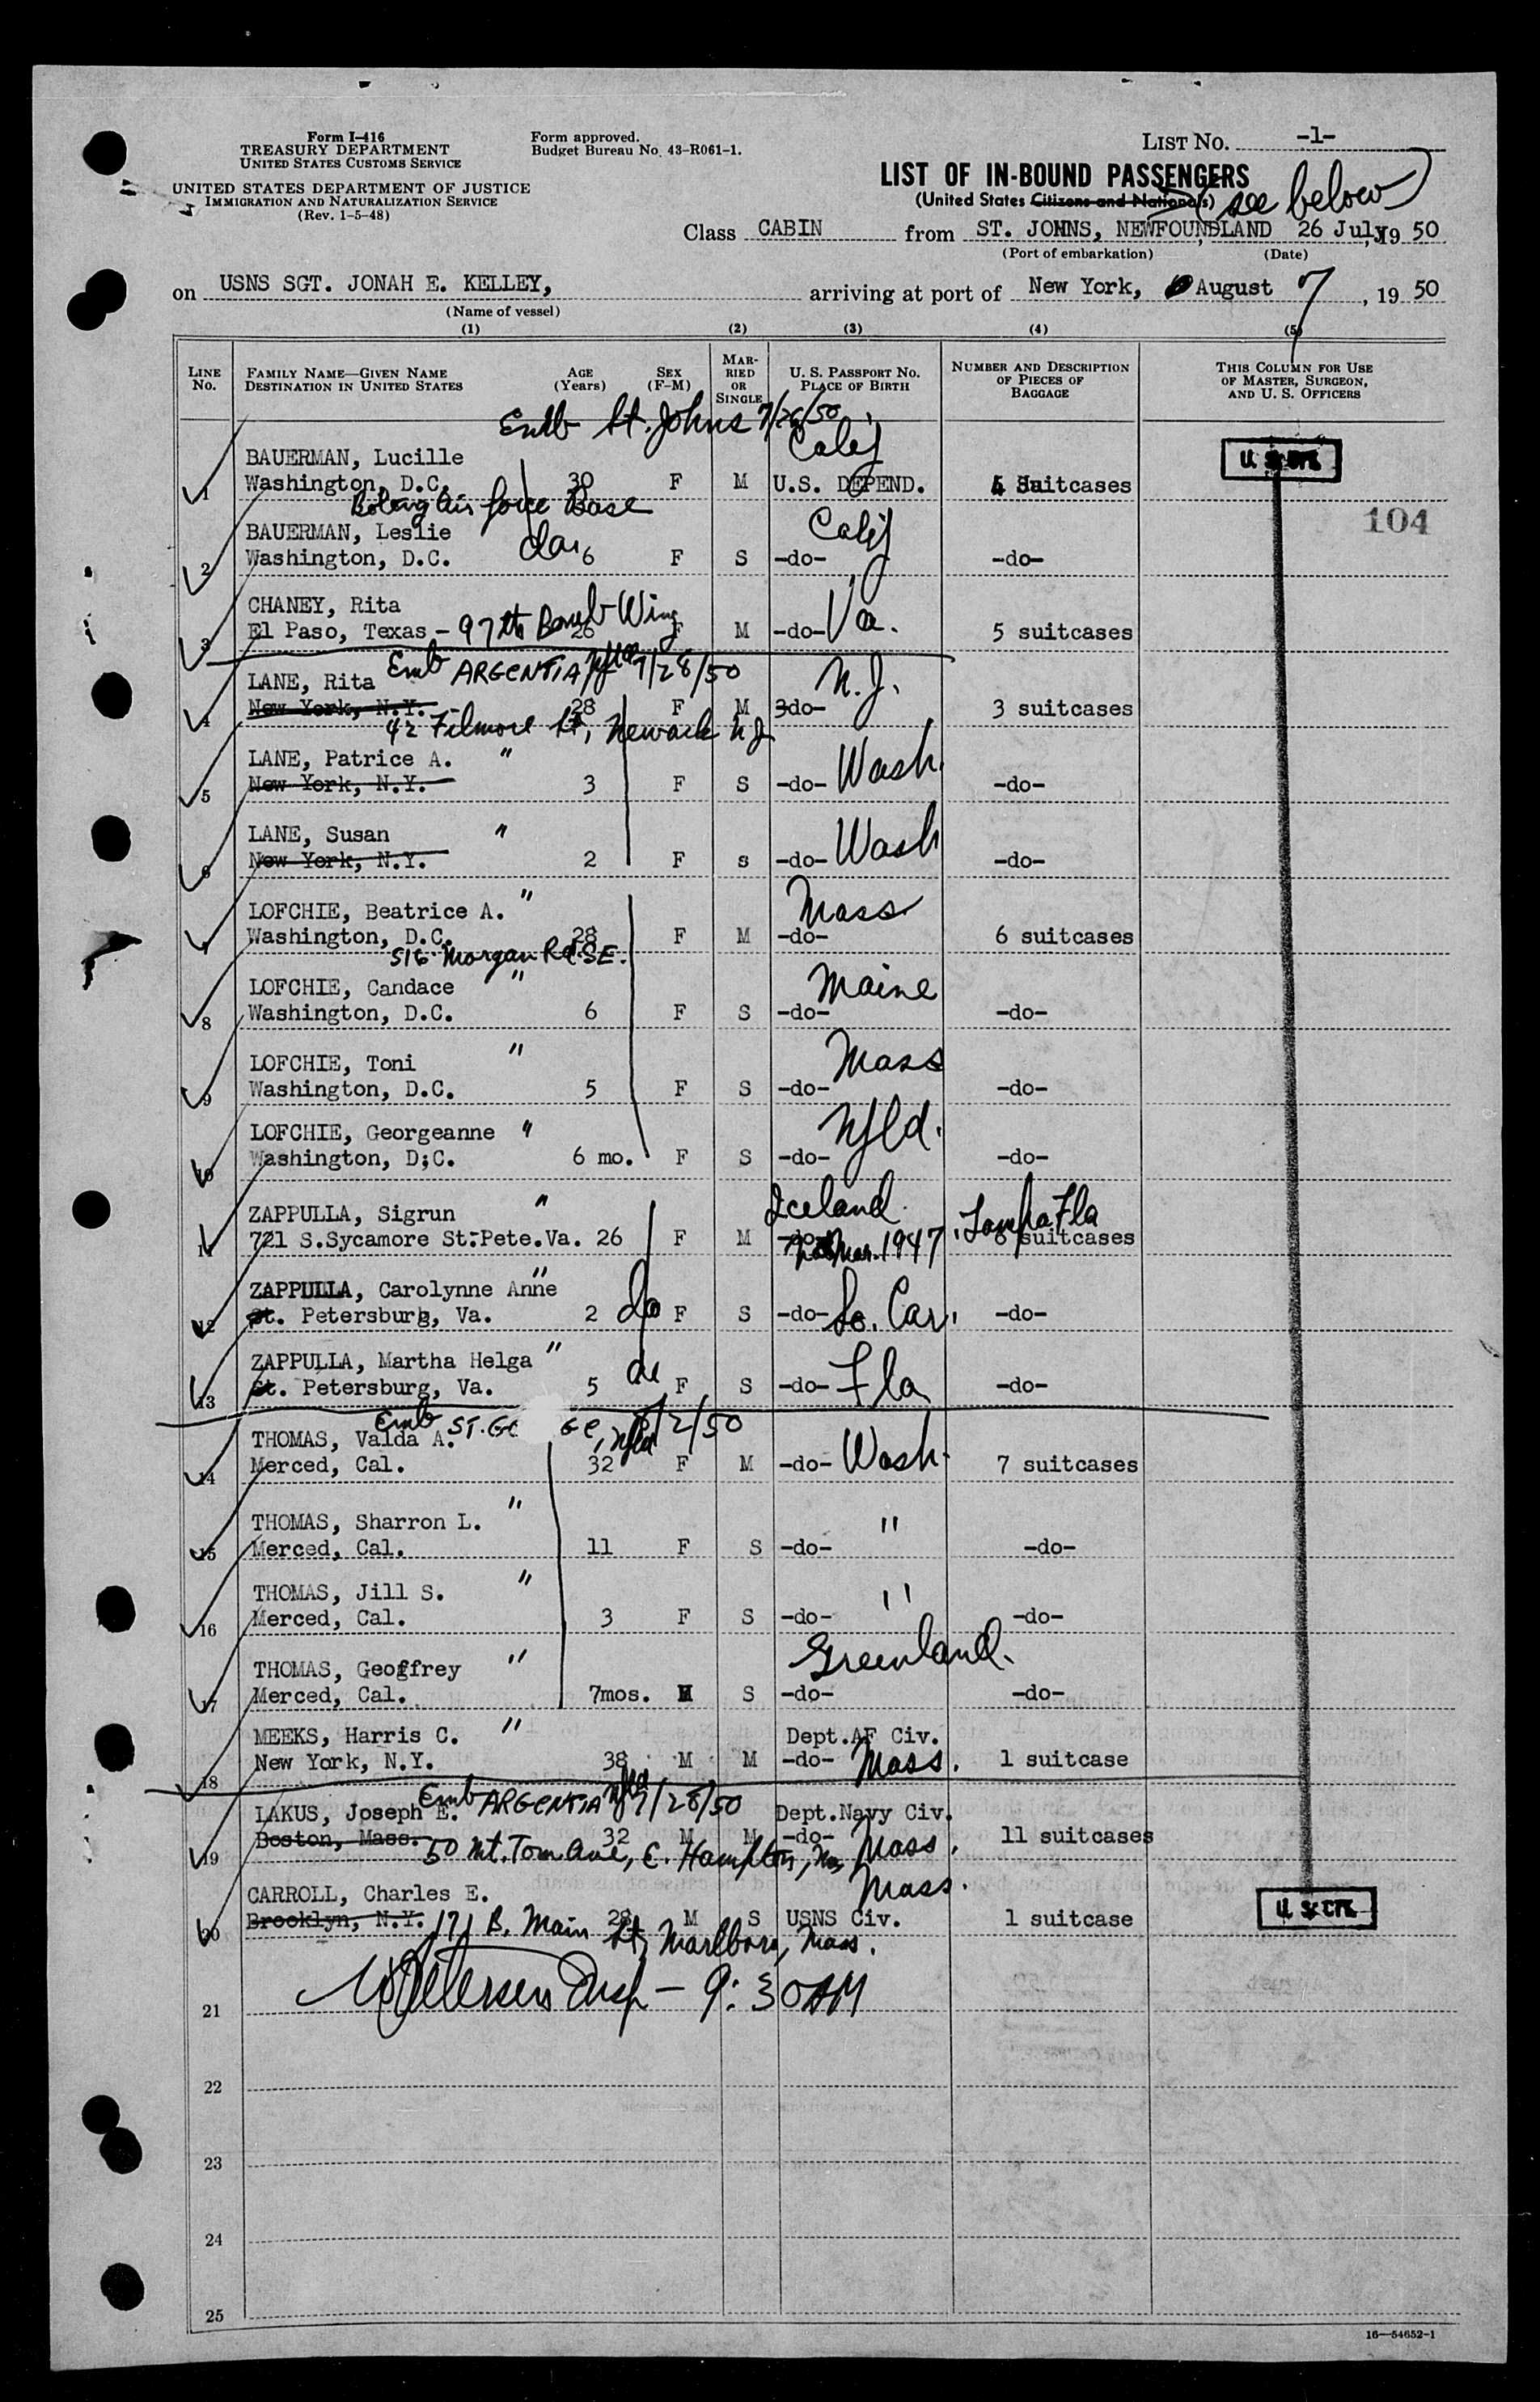 Form I-416
TREASURY DEPARTMENT
UNITED STATES CUSTOMS SERVICE
UNITED STATES DEPARTMENT OF JUSTICE
IMMIGRATION AND NATURALIZATION SERVICE
(Rev. 1-5-48)
Form approved.
Budget Bureau No. 43-R061-1.
LIST No. -1-
LIST OF IN-BOUND PASSENGERS
(United States Citizens and Nationals) (see below)
Class CABIN from ST. JOHNS, NEWFOUNDLAND 26 July, 19 50
(Port of embarkation) (Date)
on USNS SGT. JONAH E. KELLEY, arriving at port of New York, August 7, 19 50
(Name of vessel)
(1) (2) (3) (4) (5)
LINE No.
FAMILY NAME—GIVEN NAME
DESTINATION IN UNITED STATES
AGE (Years)
SEX (F-M)
MARRIED OR SINGLE
U. S. PASSPORT No.
PLACE OF BIRTH
NUMBER AND DESCRIPTION OF PIECES OF BAGGAGE
THIS COLUMN FOR USE OF MASTER, SURGEON, AND U. S. OFFICERS
Emb St. Johns 7/26/50
BAUERMAN, Lucille Calif
1 Washington, D.C. 30 F M U.S. DEPEND. Suitcases
Boling Air force Base
104
BAUERMAN, Leslie Calif
2 Washington, D.C. do 6 F S -do- -do-
CHANEY, Rita
3 El Paso, Texas - 97th Bomb Wing 26 F M -do- Va. 5 suitcases
Emb ARGENTIA Nfld 7/28/50
LANE, Rita N.J.
4 New York, N.Y. 28 F M -do- 3 suitcases
42 Filmore St, Newark NJ
LANE, Patrice A. "
5 New York, N.Y. 3 F S -do- Wash. -do-
LANE, Susan "
6 New York, N.Y. 2 F s -do- Wash -do-
LOFCHIE, Beatrice A. " Mass
7 Washington, D.C. 28 F M -do- 6 suitcases
516 Morgan Rd. SE.
LOFCHIE, Candace " Maine
8 Washington, D.C. 6 F S -do- -do-
LOFCHIE, Toni " Mass
9 Washington, D.C. 5 F S -do- -do-
LOFCHIE, Georgeanne " Nfld.
10 Washington, D;C. 6 mo. F S -do- -do-
ZAPPULLA, Sigrun " Iceland Tampa Fla
11 721 S.Sycamore St.Pete.Va. 26 F M Mar. 1947 8 suitcases
ZAPPULLA, Carolynne Anne "
12 St. Petersburg, Va. 2 do F S -do- So. Car. -do-
ZAPPULLA, Martha Helga "
13 St. Petersburg, Va. 5 do F S -do- Fla -do-
Emb ST. GE GE, Nfld 8/2/50
THOMAS, Valda A.
14 Merced, Cal. 32 F M -do- Wash. 7 suitcases
THOMAS, Sharron L. "
15 Merced, Cal. 11 F S -do- " -do-
THOMAS, Jill S. "
16 Merced, Cal. 3 F S -do- " -do-
THOMAS, Geoffrey " Greenland.
17 Merced, Cal. 7mos. M S -do- -do-
MEEKS, Harris C. " Dept.AF Civ.
18 New York, N.Y. 38 M M -do- Mass. 1 suitcase
Emb ARGENTIA Nfld 7/28/50
LAKUS, Joseph E. Dept.Navy Civ.
19 Boston, Mass. 32 M M -do- Mass. 11 suitcases
50 Mt. Tom Ave, E. Hampton, Mas
CARROLL, Charles E. Mass.
20 Brooklyn, N.Y. 28 M S USNS Civ. 1 suitcase
171 B. Main St, Marlboro, Mass.
Petersen Insp - 9:30AM
21
22
23
24
25
16—54652-1